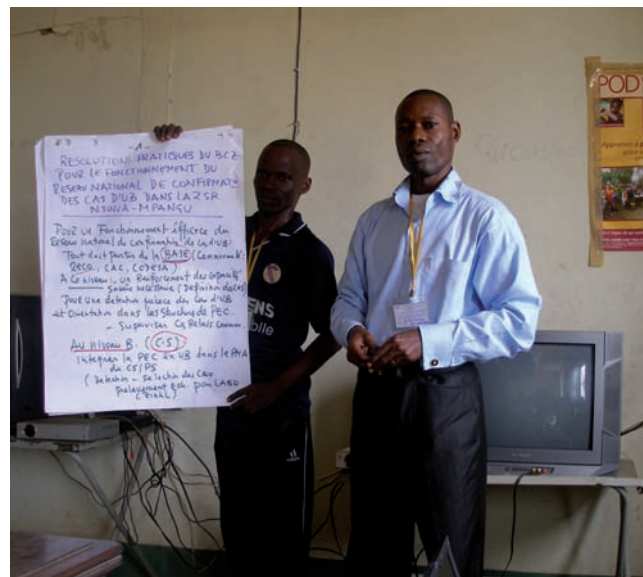 -1-
RESOLUTIONS PRATIQUES DU BCZ
POUR LE FONCTIONNEMENT DU
RESEAU NATIONAL DE CONFIRMAT°
DES CAS D'UB DANS LA ZSR
NSONA-MPANGU
POUR UN Fonctionnement éfficace du
Réseau national de confirmation de cas d'UB:
Tout doit partir de la BASE (Communauté:
RECO, CAC, CODESA)
A ce niveau, un Renforcement des capacités
serait nécessaire (Définition de cas)
Pour une détection précoce des cas d'UB
et Orientation dans les structures de PEC.
- Superviser Relais Commun.
AU NIVEAU B. (CS)
Intégrer la PEC de UB dans le PMA
du CS/PS
(Détection - Sélection des cas
prélèvement éch. pour LABO
POD
ENS
bile